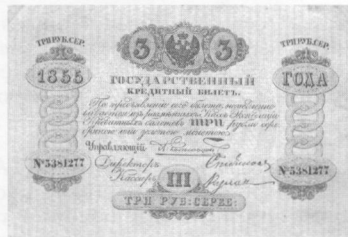 ТРИ РУБ. СЕР.
3
3
ТРИ РУБ. СЕР.
1855
ГОДА
ГОСУДАРСТВЕННЫЙ
КРЕДИТНЫЙ БИЛЕТЪ.
По предъявленіи сего билета, немедленно
выдается изъ размѣнныхъ кассъ
Кредитныхъ билетовъ ТРИ рубли сере-
бряною или золотою монетою.
Управляющій
Директоръ
Кассиръ
№5381277
№5381277
III
ТРИ РУБ: СЕРЕБ: